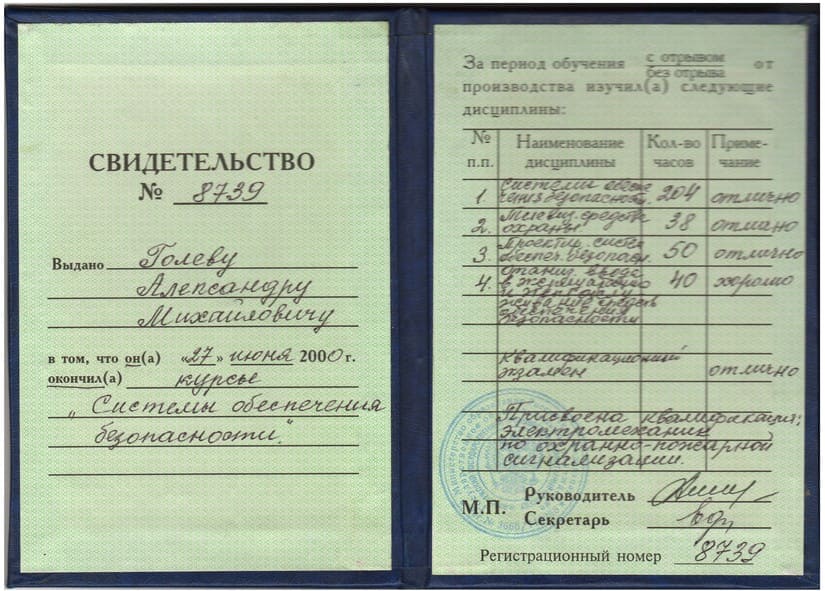 СВИДЕТЕЛЬСТВО
№ 8739
Выдано Голеву
Александру
Михайловичу
в том, что он(а) "27" июня 2000 г.
окончил(а) курсы
"Системы обеспечения
безопасности."
За период обучения с отрывом от
без отрыва
производства изучил(а) следующие
дисциплины:
№ п.п. Наименование дисциплины Кол-во часов Приме-чание
1. Системы обеспе-
чения безопасности. 204 отлично
2. средства
охраны 38 отлично
3. Проектир. систем
обеспеч. безопасн. 50 отлично
4. ввода
в эксплуатацию 40 хорошо
живание средств
обеспечения
безопасности
Квалификационный
экзамен отлично
Присвоена квалификация:
Электромеханик
по охранно-пожарной
сигнализации.
М.П.
Руководитель
Секретарь
Регистрационный номер 8739